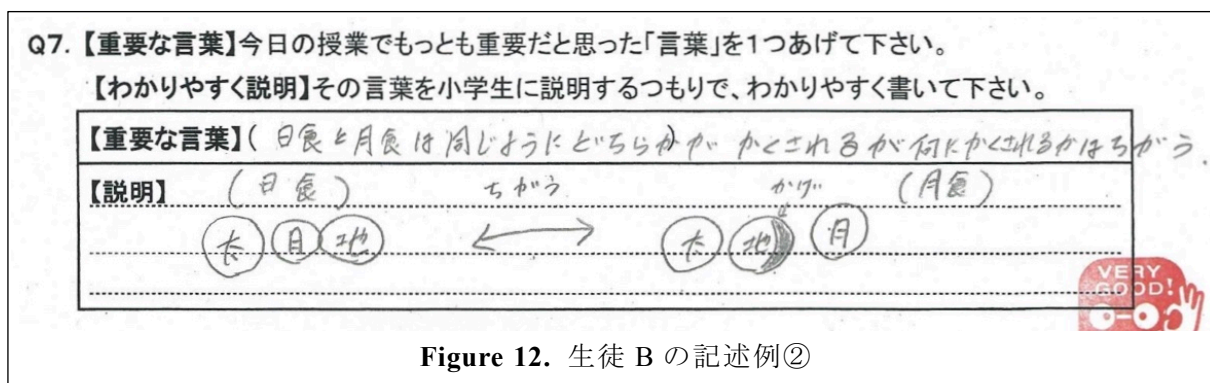 Q7.【重要な言葉】今日の授業でもっとも重要だと思った「言葉」を1つあげて下さい。
【わかりやすく説明】その言葉を小学生に説明するつもりで、わかりやすく書いて下さい。
【重要な言葉】( 日食と月食は同じようにどちらかが かくされるが何にかくされるかはちがう.
【説明】 (日食) ちがう かげ (月食)
太 月 地 ←→ 太 地 月
VERY GOOD!
Figure 12. 生徒 B の記述例②